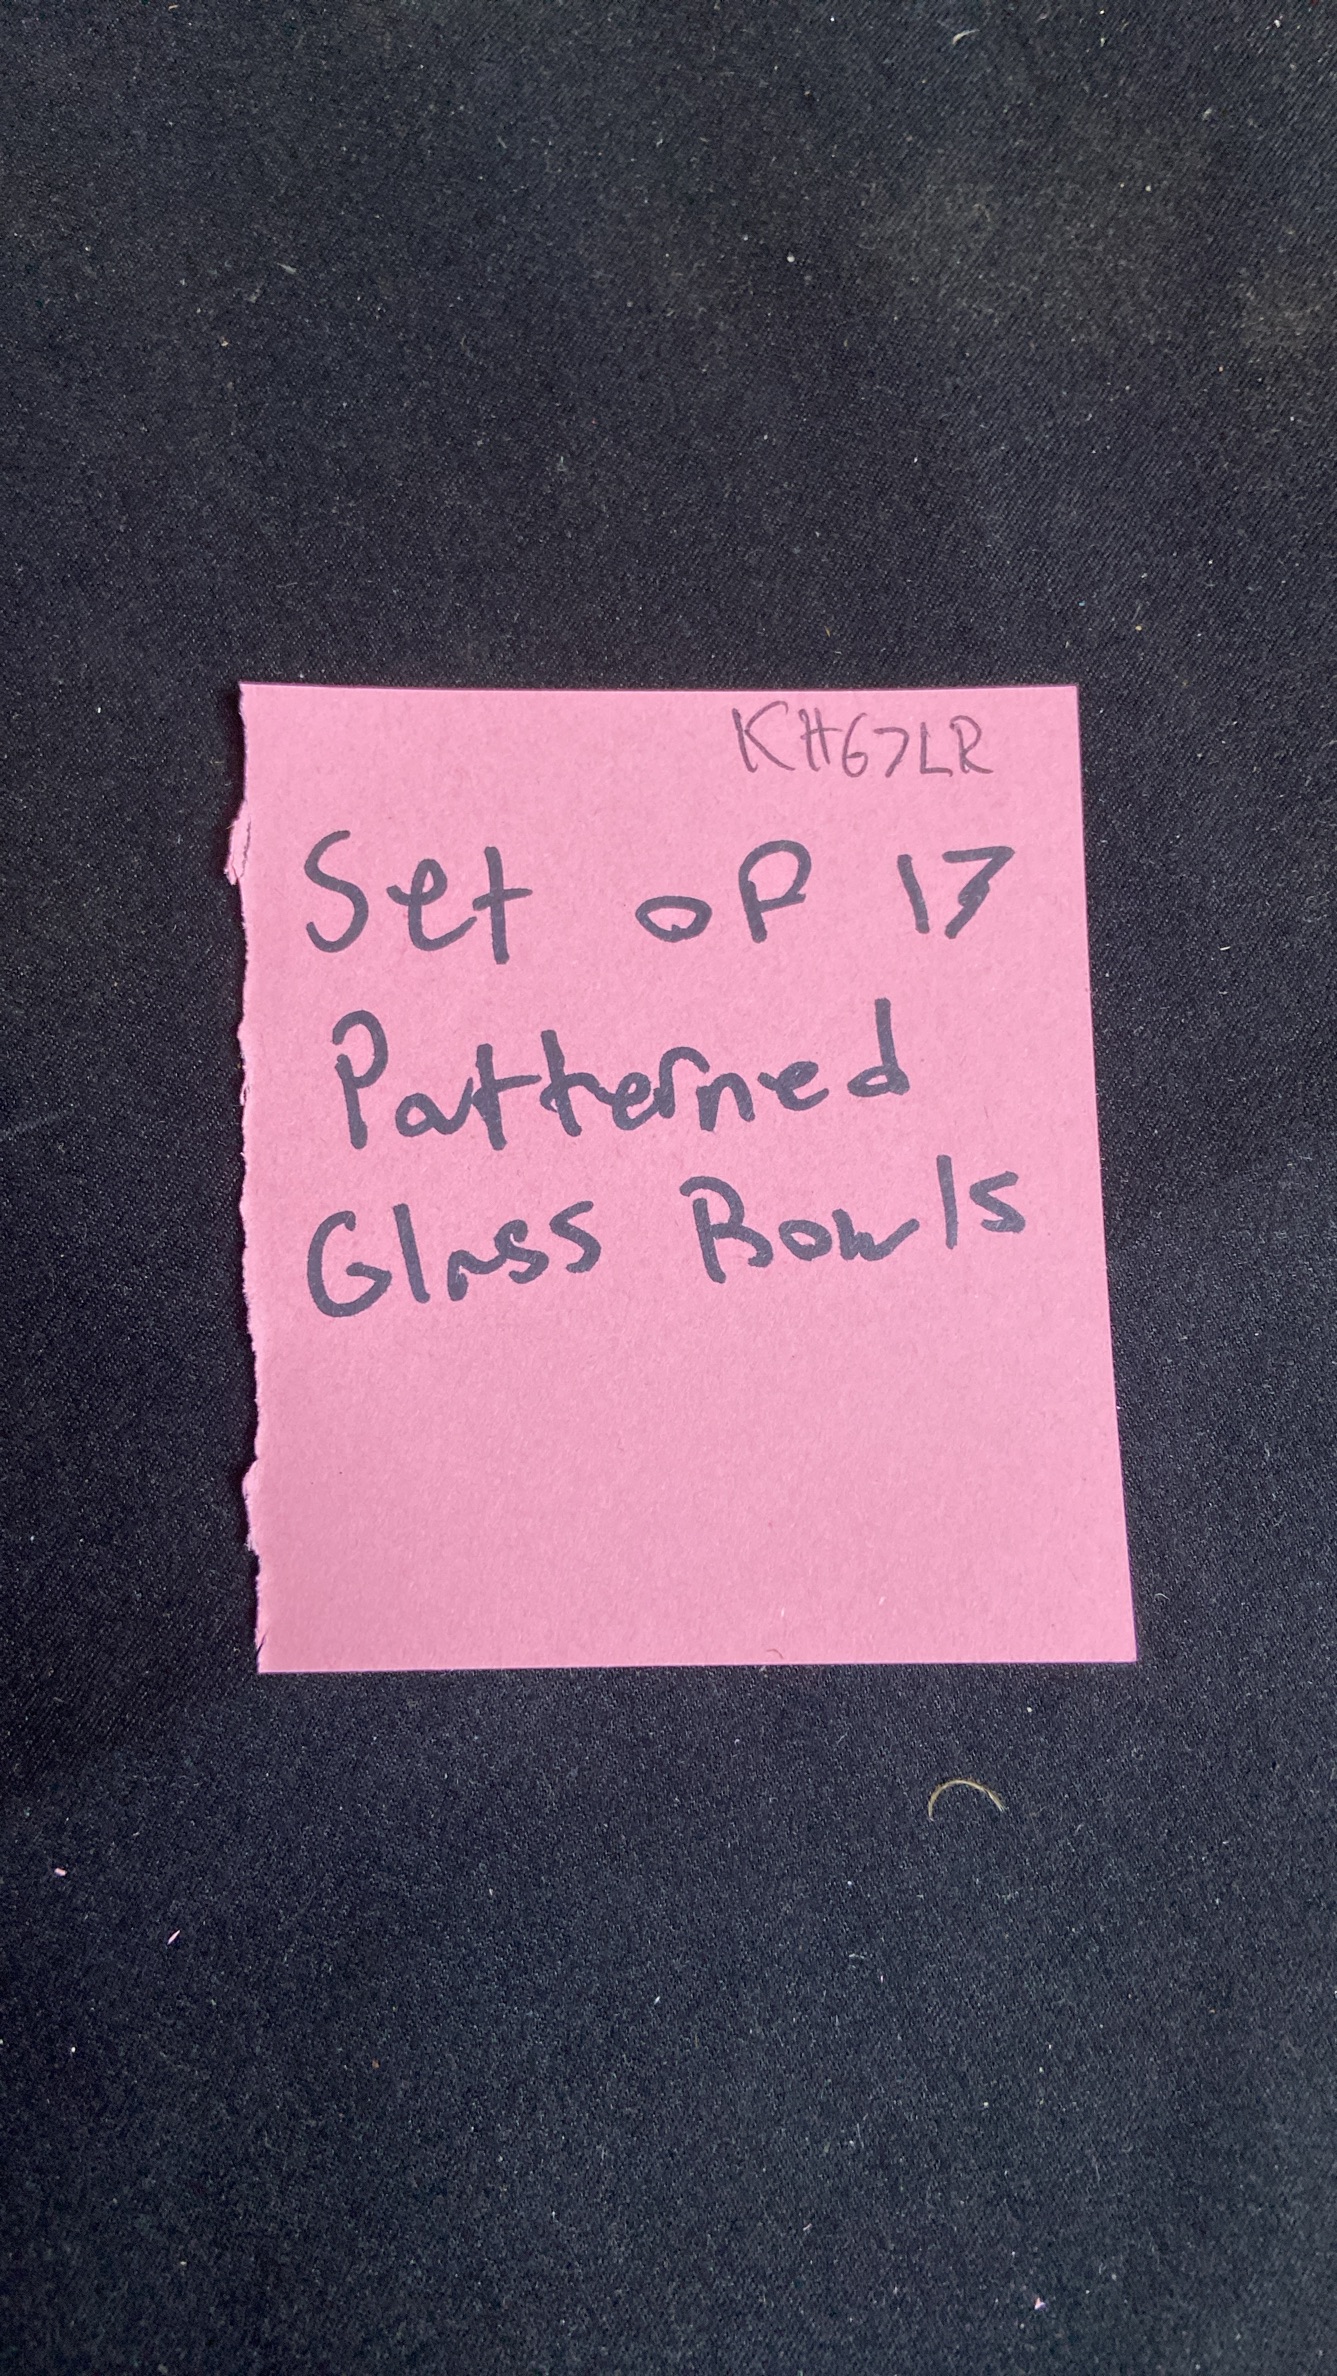 KH67LR
Set of 17
Patterned
Glass Bowls